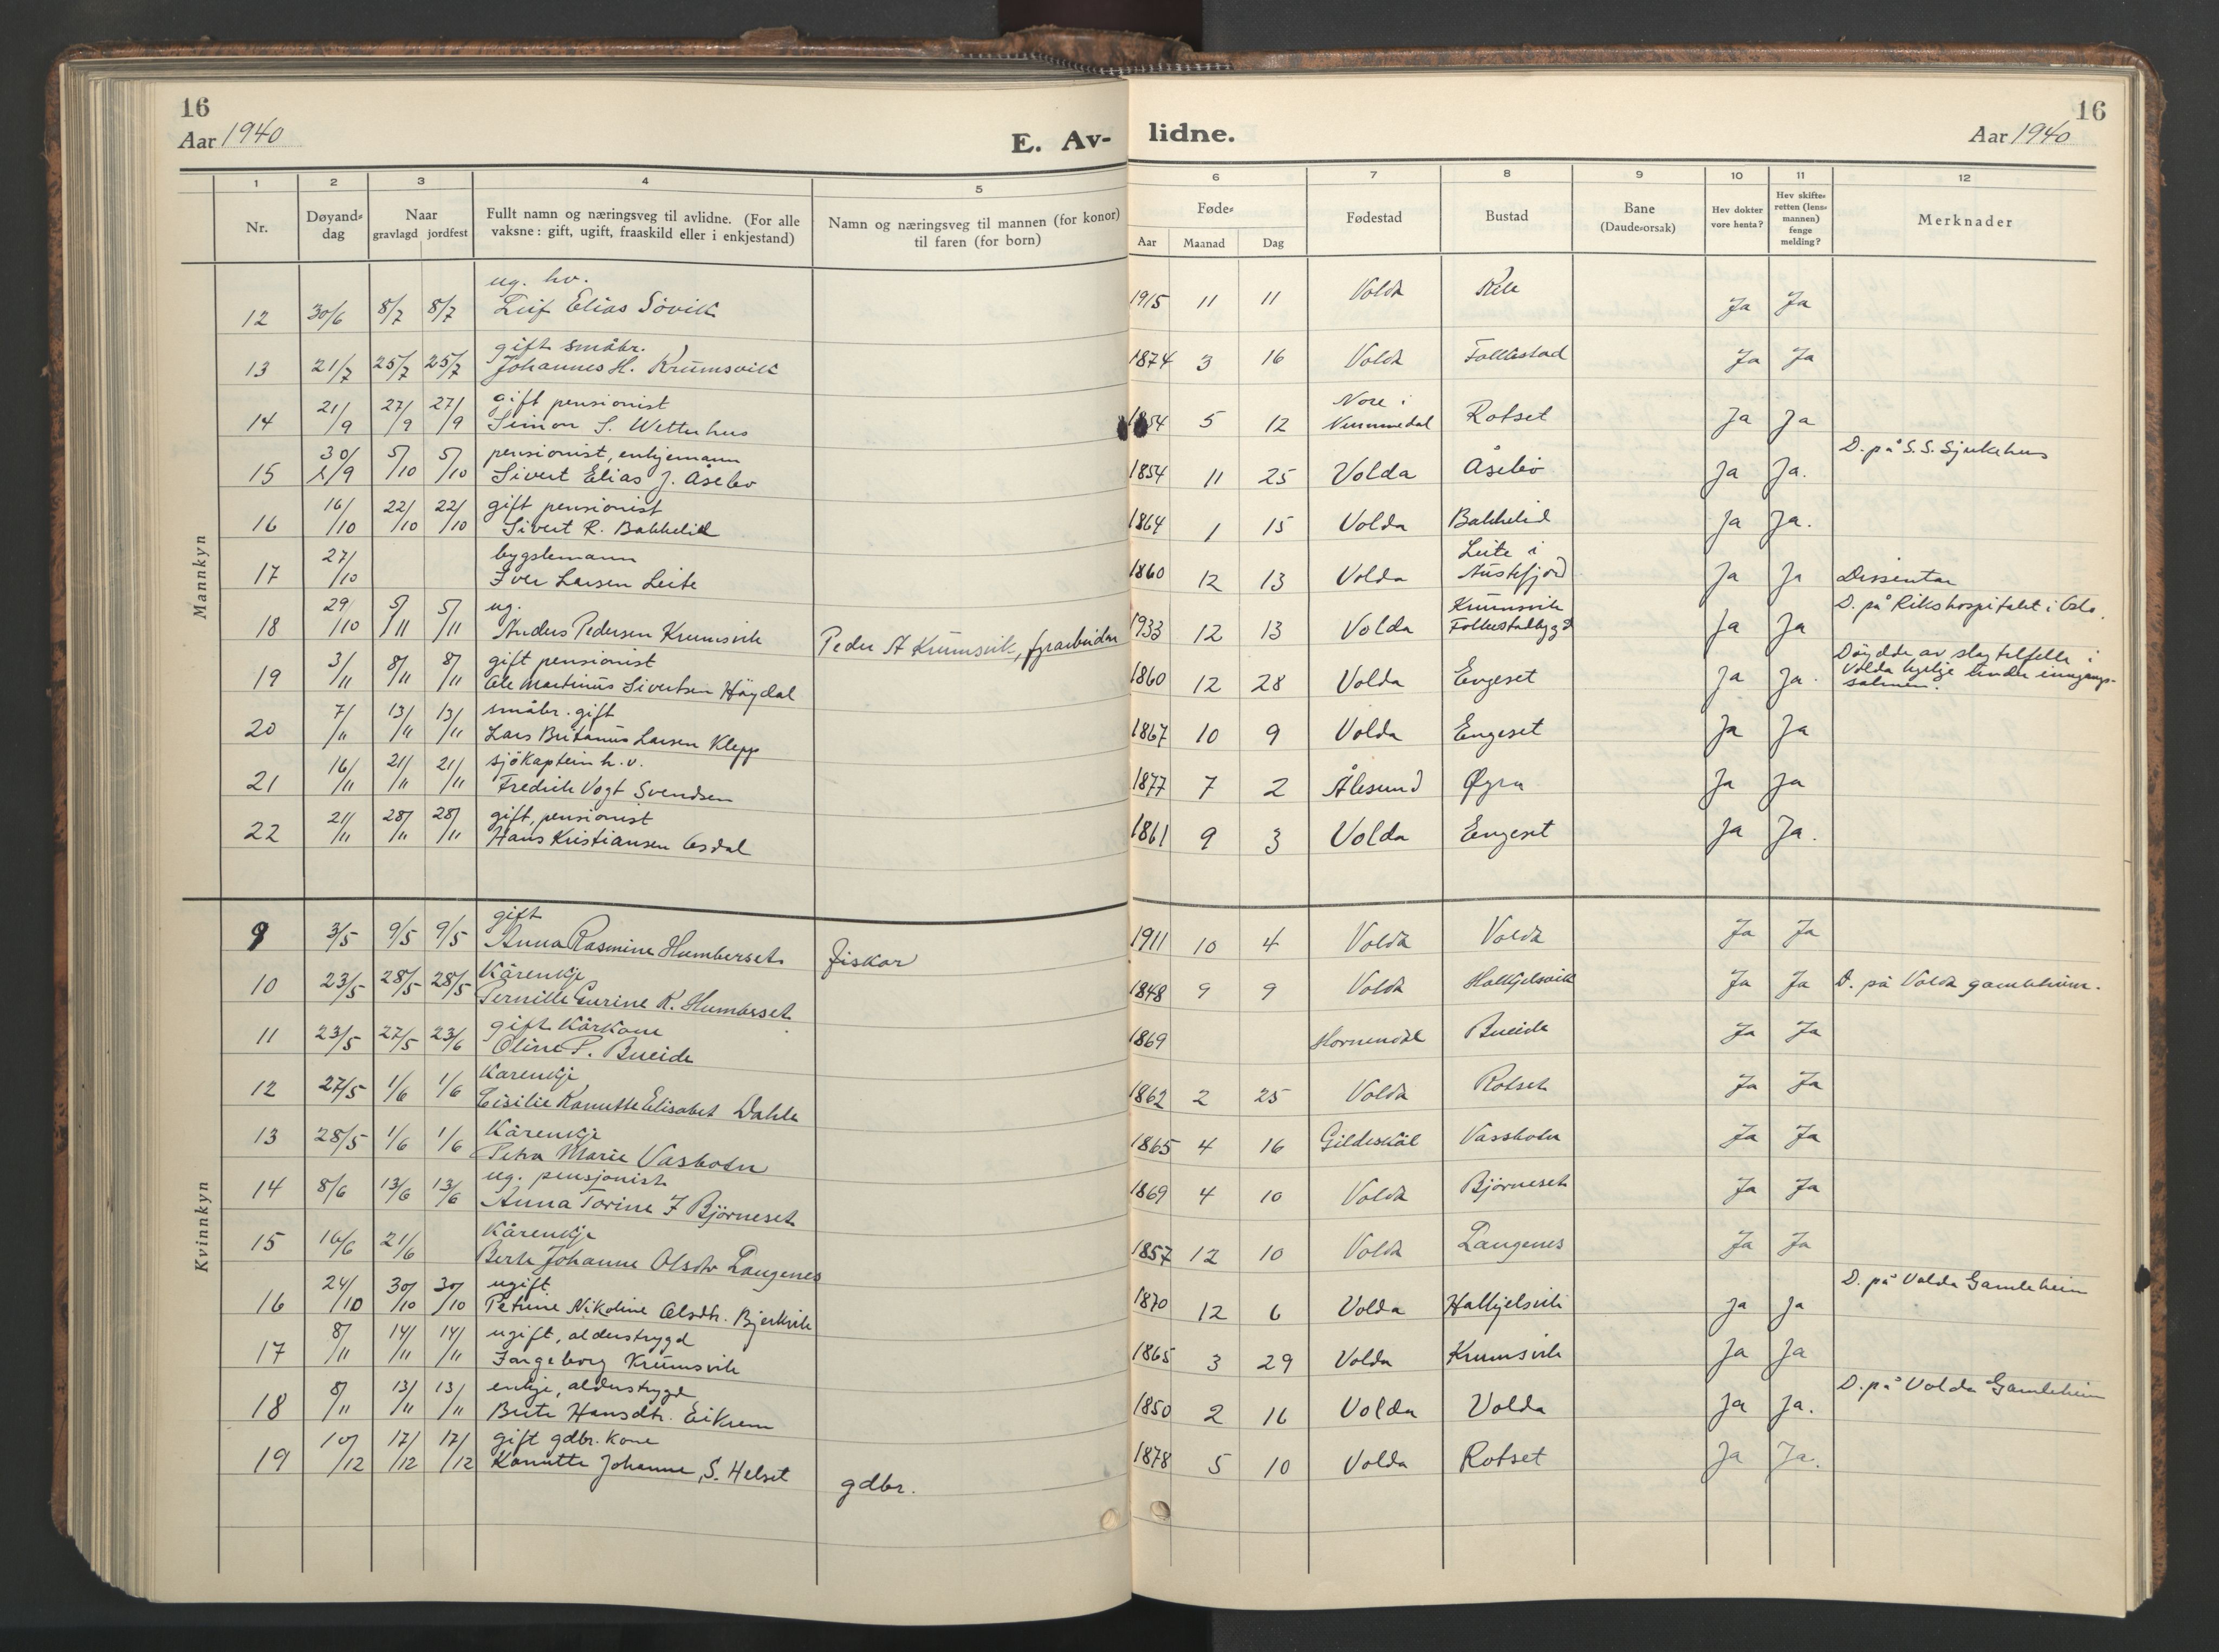 16
Aar 1940
E. Av-
lidne.
16
Aar 1940
1 2 3 4 5 6 7 8 9 10 11 12
Nr.
Døyand-
dag
Naar
gravlagd jordfest
Fullt namn og næringsveg til avlidne. (For alle
vaksne: gift, ugift, fraaskild eller i enkjestand)
Namn og næringsveg til mannen (for konor)
til faren (for born)
Føde-
Aar Maanad Dag
Fødestad
Bustad
Bane
(Daude-orsak)
Hev dokter
vore henta?
Hev skifte-
retten (lens-
mannen)
fenge
melding?
Merknader
Mannkyn
ug. hv.
12 30/6 8/7 8/7 Leif Elias Sövik 1915 11 11 Volda Kile Ja Ja
gift småbr.
13 21/7 25/7 25/7 Johannes H. Krumsvik 1874 3 16 Volda Folkestad Ja Ja
gift pensionist Nore i
14 21/9 27/9 27/9 Simon S. Wetterhus 1854 5 12 Nummedal Rotset Ja Ja
pensionist, enkjemann D. på S.S. Sjukehus
15 30/9 5/10 5/10 Sivert Elias J. Åsebö 1854 11 25 Volda Åsebö Ja Ja.
gift pensionist
16 16/10 22/10 22/10 Sivert R. Bakkelid 1864 1 15 Volda Bakkelid Ja Ja.
bygslemann Leite i
17 27/10 Iver Larsen Leite 1860 12 13 Volda Austefjord Ja Ja Dissentar
ug. Krumsvik D. på Rikshospitalet i Oslo.
18 29/10 5/11 5/11 Anders Pedersen Krumsvik Peder A Krumsvik, fyrarbeidar 1933 12 13 Volda Folkestadbygd Ja Ja
gift pensionist Döydde av slagtilfelle i
19 3/11 8/11 8/11 Ole Martinus Sivertsen Höydal 1860 12 28 Volda Engeset Ja Ja. Volda kyrkje under inngangs-
salmen.
småbr. gift
20 7/11 13/11 13/11 Lars Britanus Larsen Klepp 1867 10 9 Volda Engeset Ja Ja
sjökaptein h.v.
21 16/11 21/11 21/11 Fredrik Vogt Svendsen 1877 7 2 Ålesund Øyra Ja Ja
gift, pensionist
22 21/11 28/11 28/11 Hans Kristiansen Osdal 1861 9 3 Volda Engeset Ja Ja.
Kvinnkyn
gift
9 3/5 9/5 9/5 Anna Rasmine Humberset fiskar 1911 10 4 Volda Volda Ja Ja
Kårenkje
10 23/5 28/5 28/5 Pernille Gurine R. Humberset 1848 9 9 Volda Halkjelsvik Ja Ja D. på Volda gamleheim.
gift kårkone
11 23/5 27/5 23/6 Oline P. Bueide 1869 Hornindal Bueide Ja Ja
Kårenkje
12 27/5 1/6 1/6 Cisilie Kanutte Elisabet Dahle 1862 2 25 Volda Rotset Ja Ja
Kårenkje
13 28/5 1/6 1/6 Petra Marie Vasbotn 1865 4 16 Gildeskål Vassbotn Ja Ja
ug. pensjonist
14 8/6 13/6 13/6 Anna Torine I Björneset 1869 4 10 Volda Björneset Ja Ja
Kårenkje
15 16/6 21/6 Berte Johanne Olsdtr Langenes 1857 12 10 Volda Langenes Ja Ja
ugift D. på Volda Gamleheim
16 24/10 30/10 30/10 Petrine Nikoline Olsdtr. Bjerkvik 1870 12 6 Volda Halkjelsvik Ja Ja
ugift, alderstrygd
17 8/11 14/11 14/11 Ingeborg Krumsvik 1865 3 29 Volda Krumsvik Ja Ja
enkje, alderstrygd D. på Volda Gamleheim
18 8/11 13/11 13/11 Brite Hansdtr. Eikrem 1850 2 16 Volda Volda Ja Ja.
gift gdbr. kone
19 10/12 17/12 17/12 Kanutte Johanne S. Helset gdbr. 1878 5 10 Volda Rotset Ja Ja.